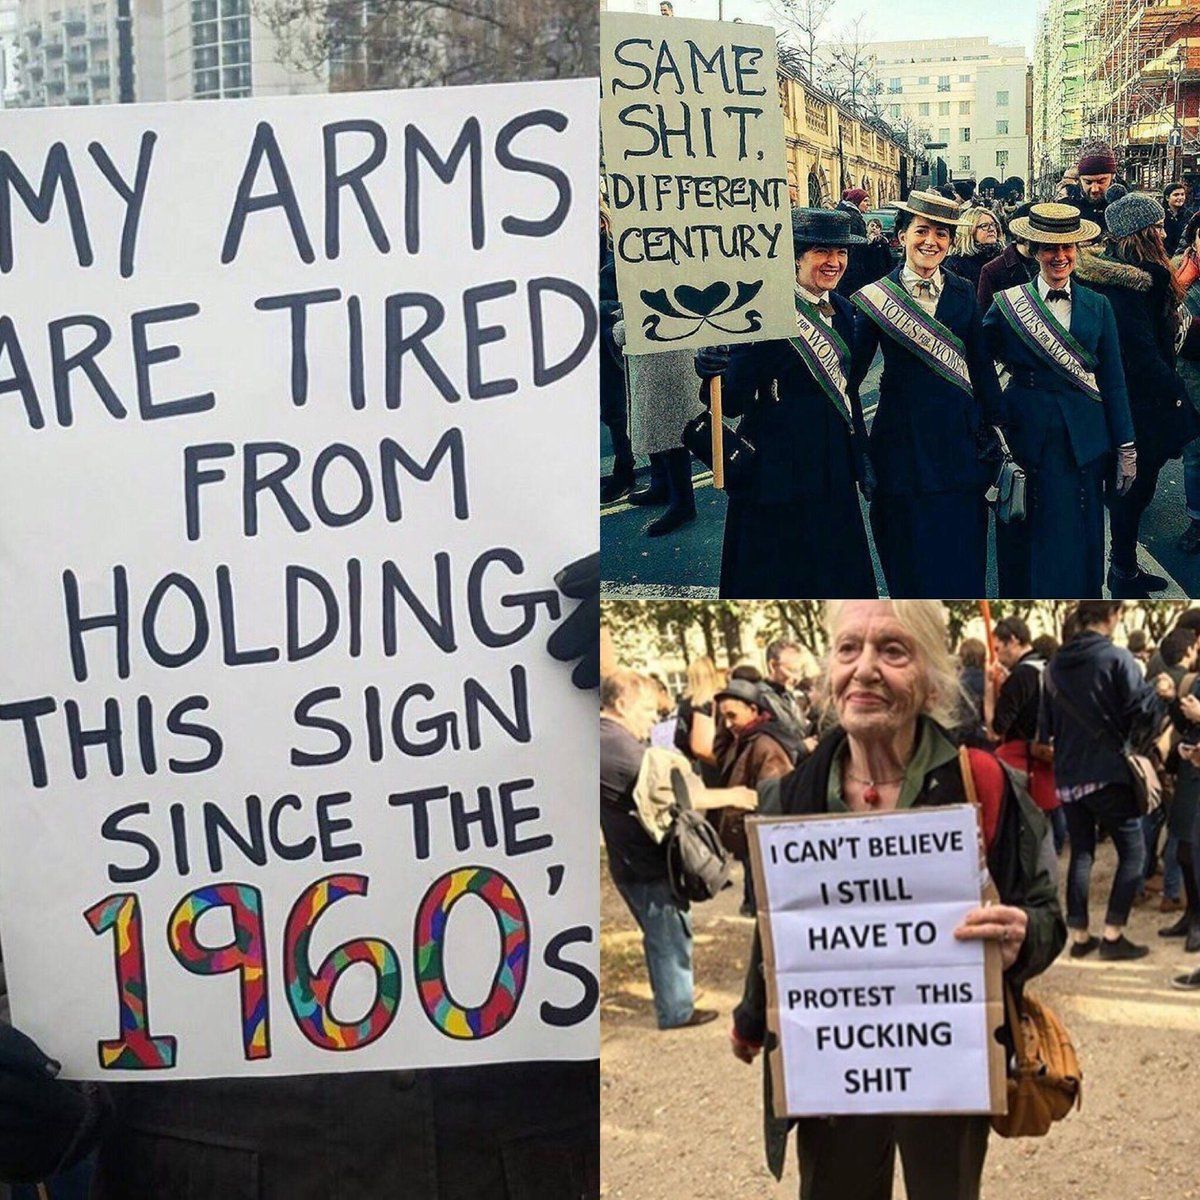 MY ARMS
ARE TIRED
FROM
HOLDING
THIS SIGN
SINCE THE
1960's
SAME
SHIT,
DIFFERENT
CENTURY
FOR WOMEN
VOTES FOR WOMEN
VOTES FOR WOMEN
I CAN'T BELIEVE
I STILL
HAVE TO
PROTEST THIS
FUCKING
SHIT